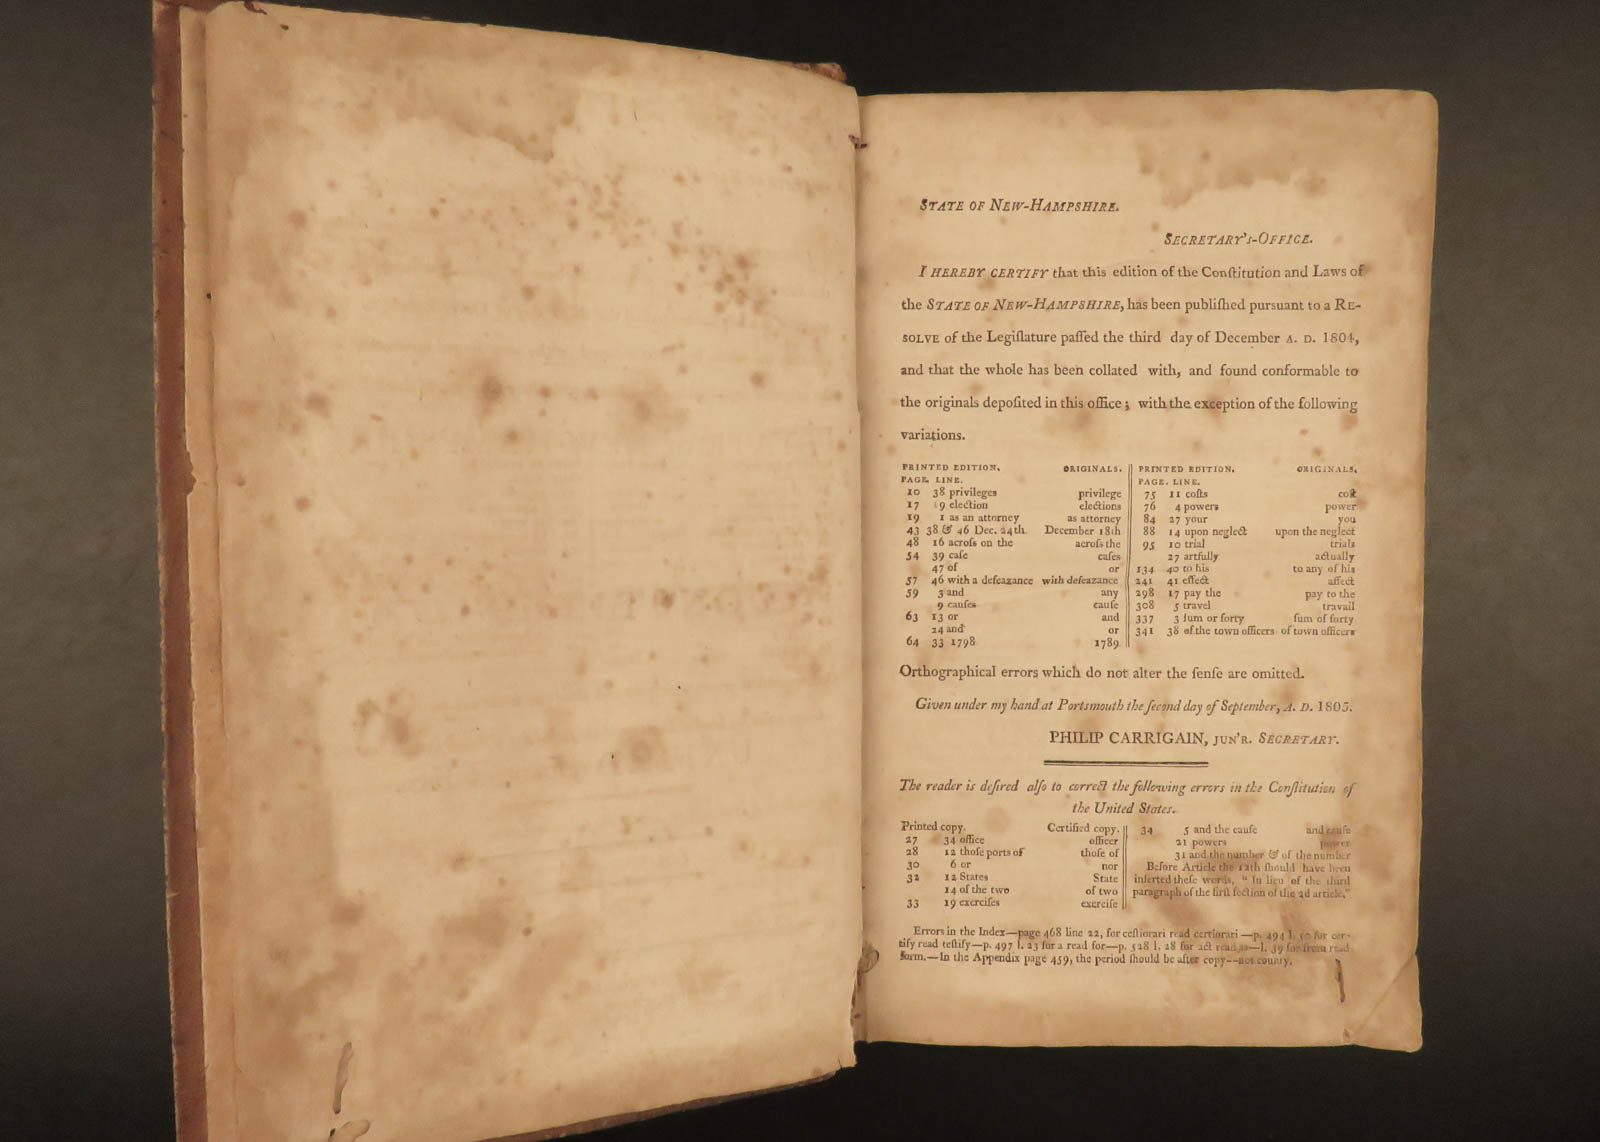 STATE OF NEW-HAMPSHIRE.
SECRETARY's-OFFICE.
I HEREBY CERTIFY that this edition of the Conſtitution and Laws of
the STATE OF NEW-HAMPSHIRE, has been publiſhed pursuant to a RE-
SOLVE of the Legiſlature paſſed the third day of December A. D. 1804,
and that the whole has been collated with, and found conformable to
the originals depoſited in this office; with the exception of the following
variations.
PRINTED EDITION. ORIGINALS.
PAGE. LINE.
10 38 privileges privilege
17 9 election elections
19 1 as an attorney as attorney
43 38 & 46 Dec. 24th. December 18th
48 16 acroſs on the acroſs the
54 39 caſe caſes
47 of or
57 46 with a defeazance with defeazance
59 3 and any
9 cauſes cauſe
63 13 or and
24 and or
64 33 1798 1789
PRINTED EDITION. ORIGINALS.
PAGE. LINE.
75 11 coſts coſt
76 4 powers power
84 27 your you
88 14 upon neglect upon the neglect
95 10 trial trials
27 artfully actually
134 40 to his to any of his
241 41 effect affect
298 17 pay the pay to the
308 5 travel travail
337 3 ſum or forty ſum of forty
341 38 of the town officers of town officers
Orthographical errors which do not alter the ſenſe are omitted.
Given under my hand at Portsmouth the ſecond day of September, A. D. 1805.
PHILIP CARRIGAIN, JUN'R. SECRETARY.
The reader is deſired alſo to correct the following errors in the Conſtitution of
the United States.
Printed copy. Certified copy.
27 34 office officer
28 12 thoſe ports of thoſe of
30 6 or nor
32 12 States State
14 of the two of two
33 19 exerciſes exerciſe
34 5 and the cauſe and cauſe
21 powers power
31 and the number & of the number
Before Article the 12th ſhould have been
inſerted theſe words, "In lieu of the third
paragraph of the firſt ſection of the 2d article."
Errors in the Index—page 468 line 22, for ceſtiorari read certiorari—p. 494 l. 50 for cer-
tify read teſtify—p. 497 l. 23 for a read for—p. 528 l. 28 for act read as—l. 39 for from read
form.—In the Appendix page 459, the period ſhould be after copy--not county.